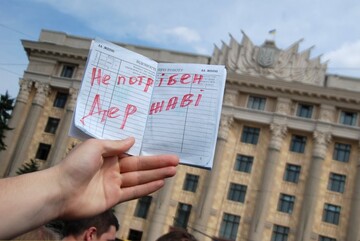 Не потрібен
Державі